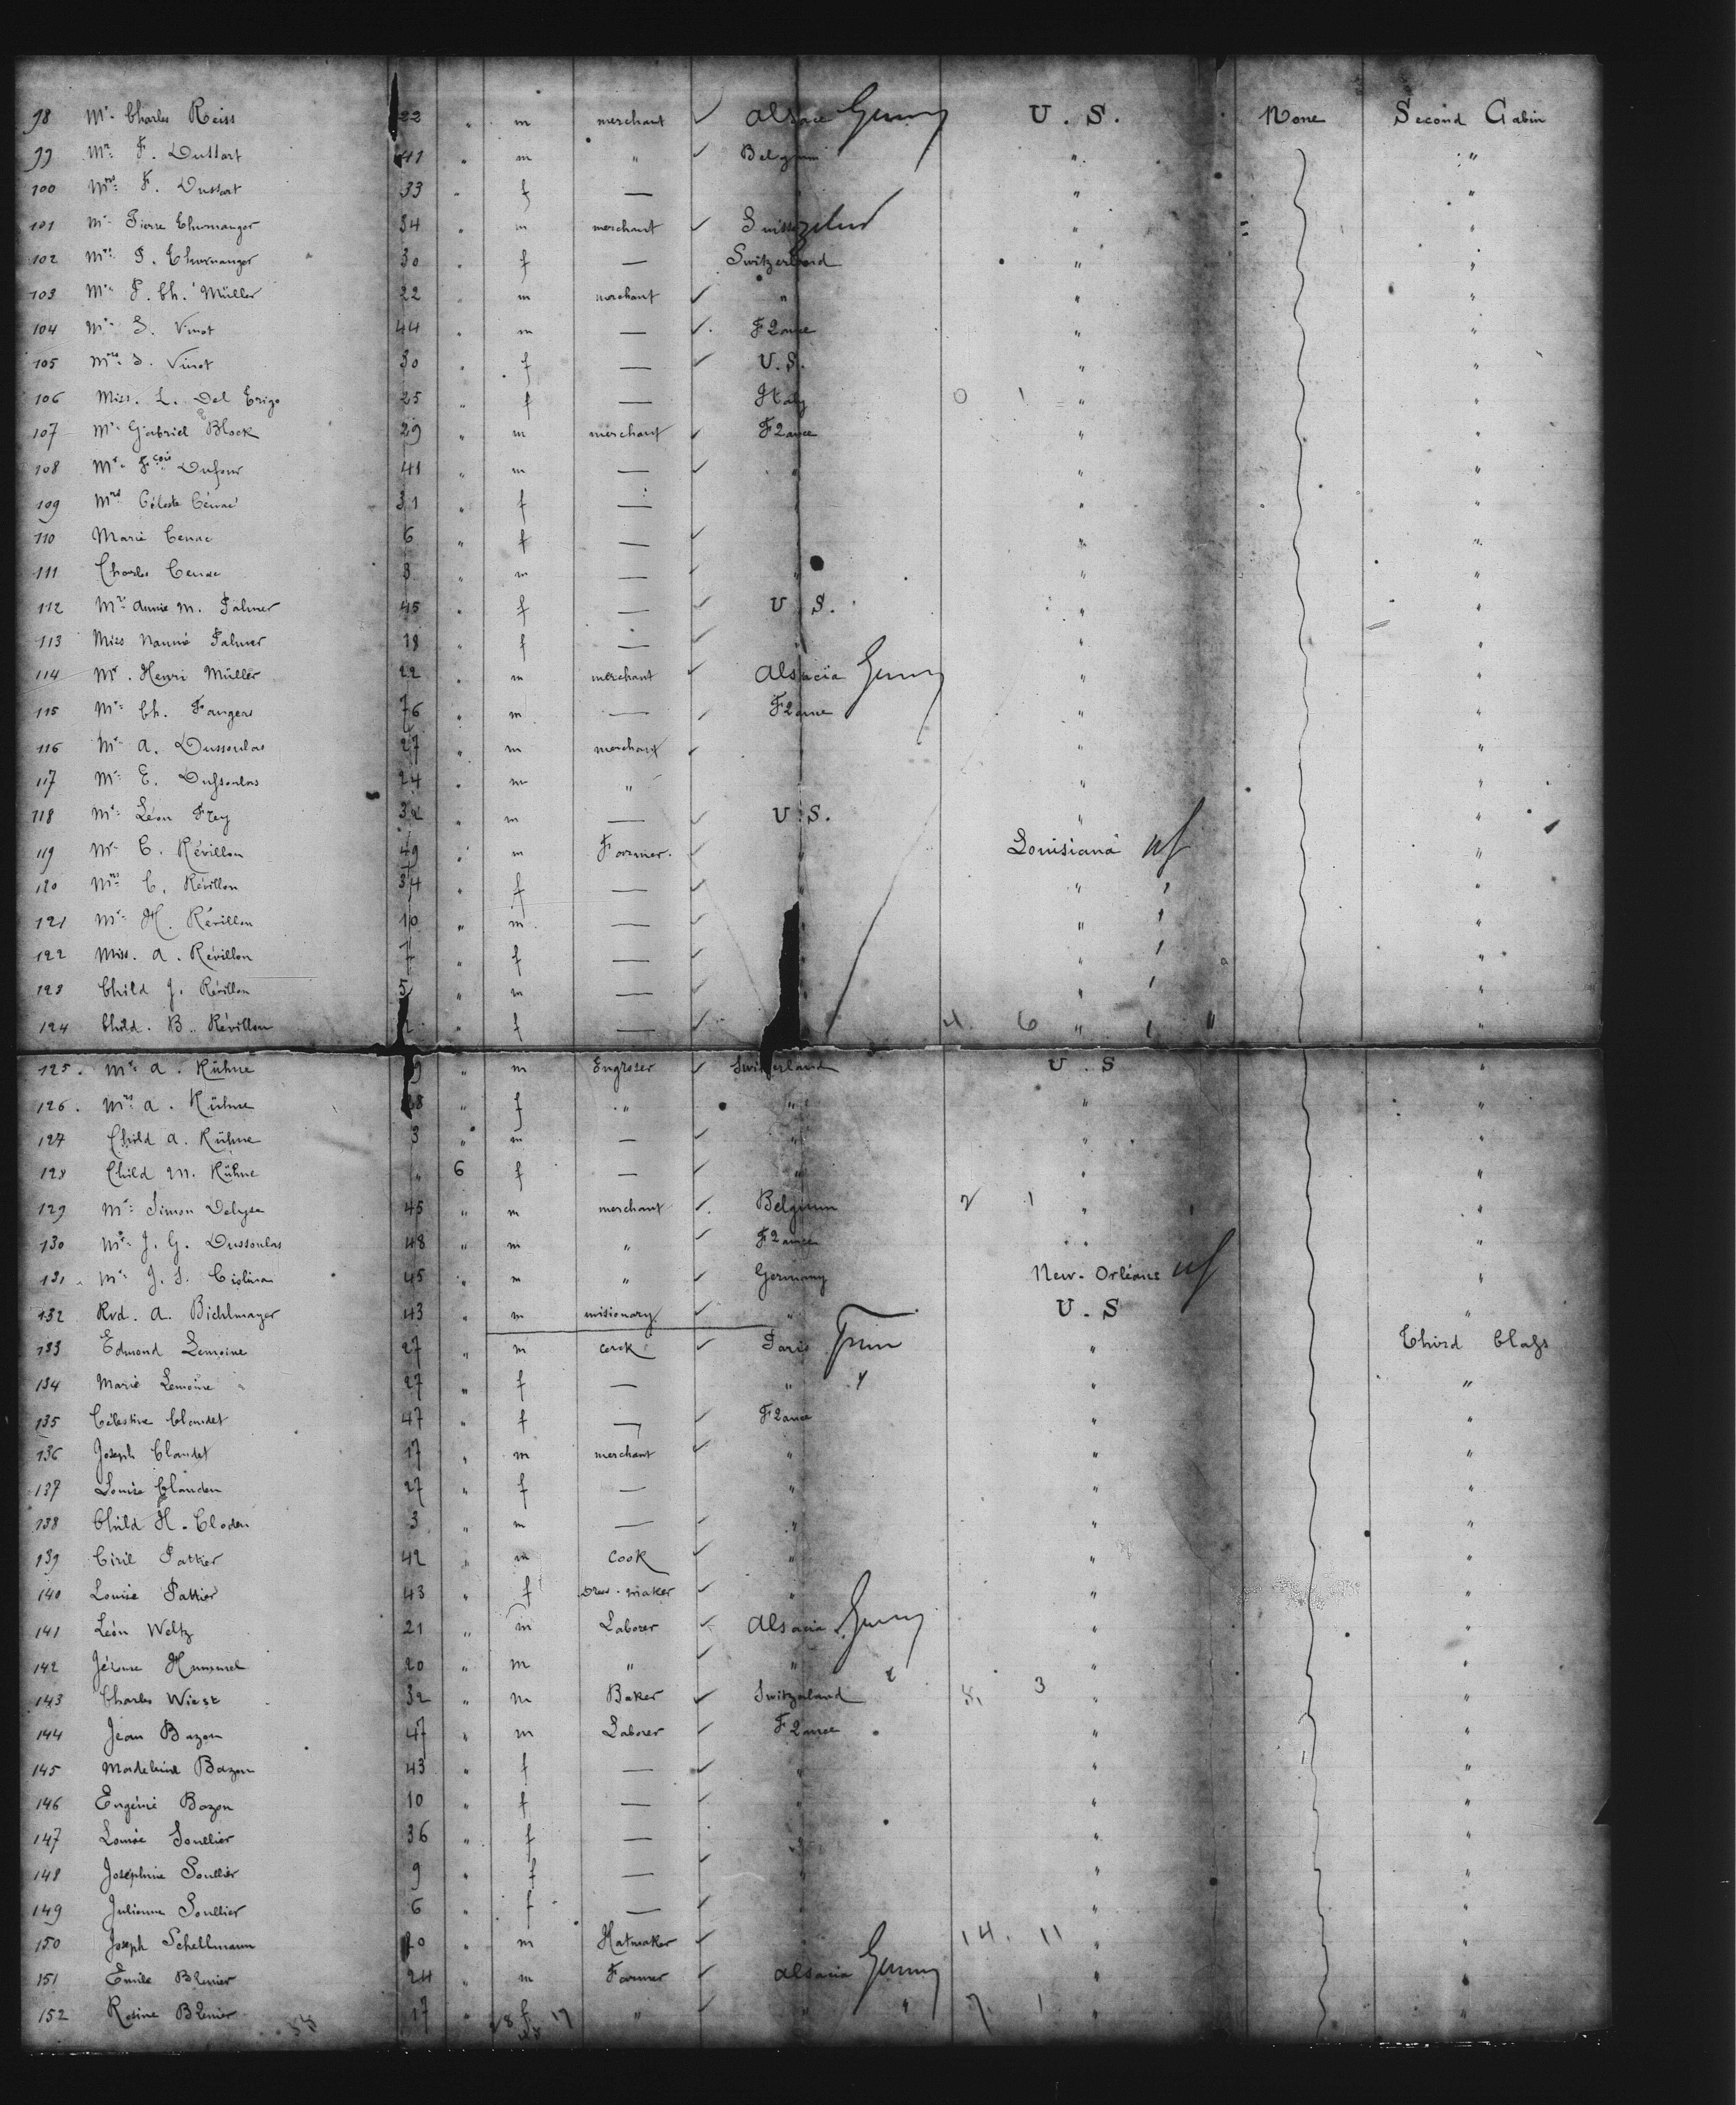 98 Mr. Charles Reiss 22 " m merchant ✓ Alsace Germy U. S. None Second Cabin
99 Mr. F. Dussart 41 " m " ✓ Belgium " "
100 Mrs. F. Dussart 33 " f — " "
101 Mr. Pierre 34 " m merchant ✓ " "
102 Mrs. P. 30 " f — Switzerland " "
103 Mr. P. Ch. Müller 22 " m merchant ✓ " " "
104 Mr. S. Vinot 44 " m — ✓ France " "
105 Mrs. S. Vinot 30 " f — ✓ U.S. " "
106 Miss. L. Del Erigo 25 " f — Italy 0 1 " "
107 Mr. Gabriel Block 29 " m merchant ✓ France " "
108 Mr. Fçois Dufour 41 " m — ✓ " " "
109 Mrs Céleste Cénac 31 " f — " "
110 Marie Cenac 6 " f — ✓ " "
111 Charles Cenac 3 " m — ✓ " " "
112 Mrs. Annie M. Palmer 45 " f — ✓ U. S. " "
113 Miss Nannie Palmer 18 " f — ✓ " " "
114 Mr. Henri Müller 22 " m merchant ✓ Alsacia Germy " "
115 Mr. Ch. Fangeas 76 " m — ✓ France " "
116 Mr. A. Dussoulas 27 " m merchant ✓ " "
117 Mr. E. Dussoulas 24 " m " " "
118 Mr. Léon Frey 32 " m — ✓ U. S. " "
119 Mr. C. Révillon 49 " m Farmer. ✓ " Louisiana "
120 Mrs. C. Révillon 34 " f — ✓ " " "
121 Mr. H. Révillon 10 " m — ✓ " " "
122 Miss. A. Révillon 7 " f — ✓ " " "
123 Child J. Révillon 5 " m — ✓ " " "
124 Child. B. Révillon " f — ✓ 4. 6 " "
125. Mr. A. Kühne " m Engraver ✓ Switzerland U. S "
126. Mrs A. Kühne " f " " " "
127 Child A. Kühne 3 " m — ✓ " " "
128 Child M. Kühne " 6 f — ✓ " " "
129 Mr. Simon Delyse 45 " m merchant ✓ Belgium 2 1 " "
130 Mr. J. G. Dussoulas 48 " m " ✓ France " "
131 Mr. J. S. 45 " m " ✓ Germany New-Orléans "
132 Rvd. A. Bichlmayer 43 " m misionary ✓ " U. S "
133 Edmond Lemoine 27 " m ✓ Paris " Third Class
134 Marie Lemoine 27 " f — " " "
135 Célestine Claudet 47 " f — ✓ France " "
136 Joseph Claudet 17 " m merchant ✓ " " "
137 Louise Clauden 27 " f — " " "
138 Child H. Cloden 3 " m — ✓ " " "
139 Ciril Pattier 42 " m Cook ✓ " " "
140 Louise Pattier 43 " f Dress-maker ✓ " " "
141 Léon Weltz 21 " m Laborer ✓ Alsacia Germy " "
142 Jérome Hummel 20 " m " ✓ " " "
143 Charles Wiest 32 " m Baker ✓ Switzerland 3 " "
144 Jean Bazon 47 " m Laborer ✓ France " "
145 Madeleine Bazon 43 " f — ✓ " " "
146 Eugénie Bazon 10 " f — ✓ " " "
147 Louise Soullier 36 " f — " " "
148 Joséphine Soullier 9 " f — ✓ " " "
149 Julienne Soullier 6 " f — ✓ " " "
150 Joseph Schellmann " m Hatmaker ✓ " 14. 11 " "
151 Emile Blenier 24 " m Farmer ✓ Alsacia Germy " "
152 Rosine Blenier 17 " f " ✓ " " 7. 1 " "